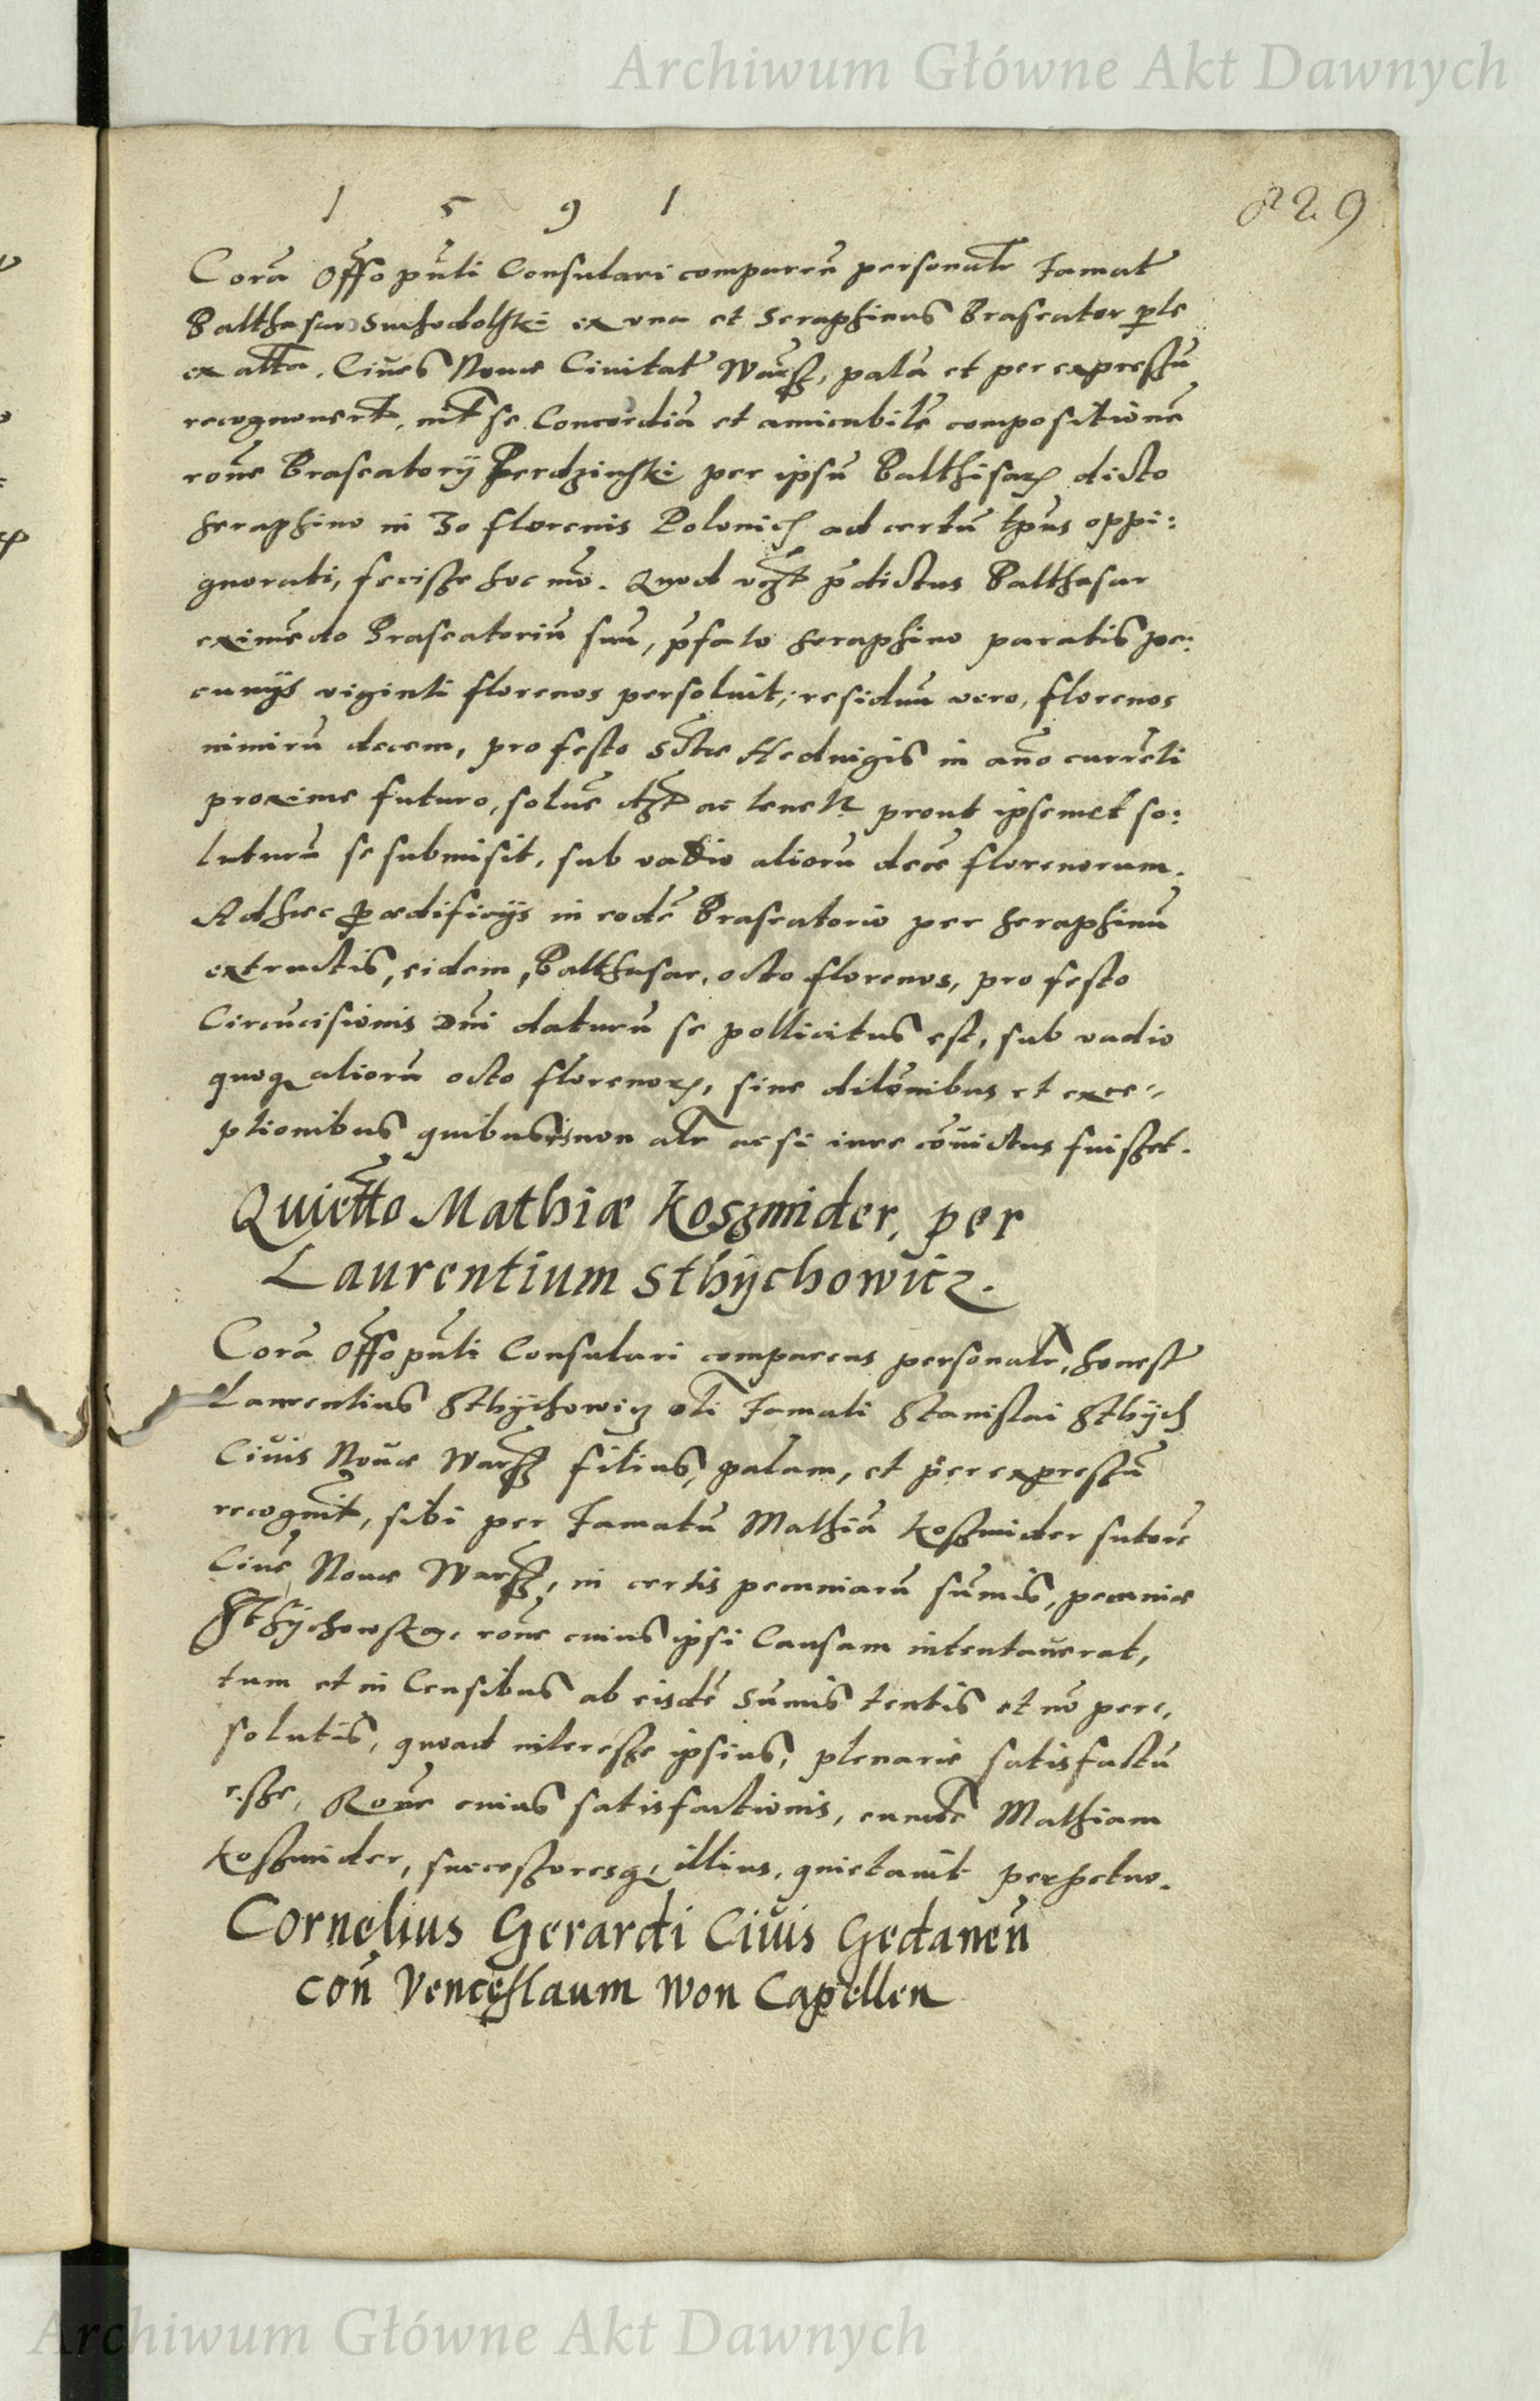 Archiwum Główne Akt Dawnych
1 5 9 1
229
Corã Offo pũti Consulari comparen personatr famat
Balthasar Suchodolski ex una et Seraphinus Braseator ple
ex altã, Ciues Nouæ Ciuitat Warsz, palã et per expressũ
recognouert, int se Concordiã et amicabilẽ compositionẽ
rõne Braseatorij Perdzinski per ipsũ Balthisar dicto
Seraphino in 30 florenis Polonic ad certũ tpus oppi:
gnorati, fecisse hoc mõ. Quod p̃dictus Balthasar
eximẽdo Braseatoriũ suũ, p̃fato Seraphino paratis pe:
cunijs viginti florenos persoluit, residuũ vero, florenos
nimirũ decem, pro festo Sctæ Heduigis in ãno currẽti
proxime futuro, soluẽ ac tenetr prout ipsemet so:
luturũ se submisit, sub vadio aliorũ decẽ florenorum.
Adhæc p ædificijs in eodẽ Braseatorio per Seraphinũ
extructis, eidem, Balthasar, octo florenos, pro festo
Circũcisionis Dñi daturũ se pollicitus est, sub vadio
quoq aliorũ octo florenor, sine dilõnibus et exce-
ptionibus quibusuis non alr ac si iure cõuictus fuisset.
Quietto Mathiæ Koszmider, per
Laurentium Sthychowicz.
Corã Offo pũti Consulari comparens personalr, honest
Laurentius Sthychowicz oli famati Stanislai Sthych
Ciuis Nouæ Warsz filius, palam, et per expressũ
recognuit, sibi per famatũ Mathiã Koszmider sutorẽ
Ciuẽ Nouæ Warsz, in certis pecuniarũ sũmis, pecuniæ
Sthychowskæ, rõne cuius ipsi Causam intentauerat,
tum et in Censibus ab eisdẽ Sũmis tentis et nõ per-
solutis, quoad interesse ipsius, plenarie satisfactũ
esse, Rõne cuius satisfactionis, eundẽ Mathiam
Koszmider, successoresq, illius, quietauit perpetuo.
Cornelius Gerardi Ciuis Gedaneñ
coñ Venceslaum Won Capellen
Archiwum Główne Akt Dawnych